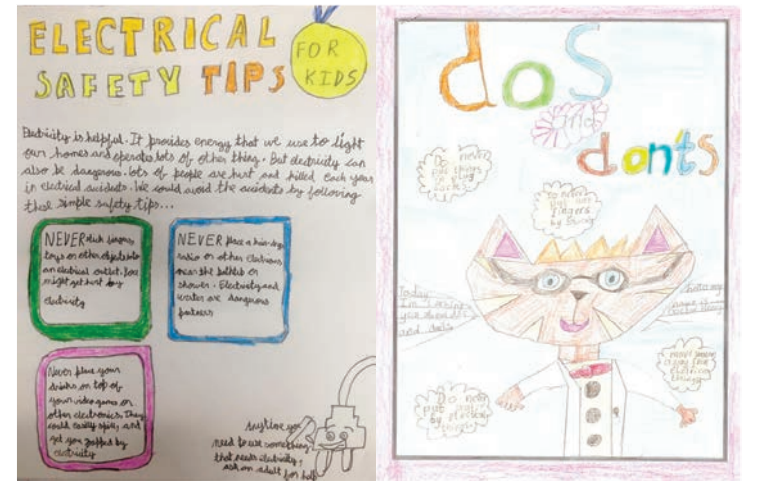 ELECTRICAL
SAFETY TIPS
FOR
KIDS
Electricity is helpful. It provides energy that we use to light
our homes and operate lots of other thing. But electricity can
also be dangerous. lots of people are hurt and killed Each year
in electrical accidents. We could avoid the accidents by following
these simple safety tips...
NEVER stick fingers
toys or other objects into
an electical outlet. You
might get hurt by
electricity
NEVER place a hair-dryer
radio or other electronics
near the bathtub or
shower. Electricity and
water are dangerous
partners
Never place your
drinks on top of
your video games or
other electronics. They
could easily spill, and
get you zapped by
electricity
Anytime you
need to use something
that needs electricity,
ask an adult for help
dos
and
don'ts
Do never
put things
in plug
socks
so never
put wet
fingers
by
Today
I'm
you
and don'ts
Hello my
name
Do never
put
by